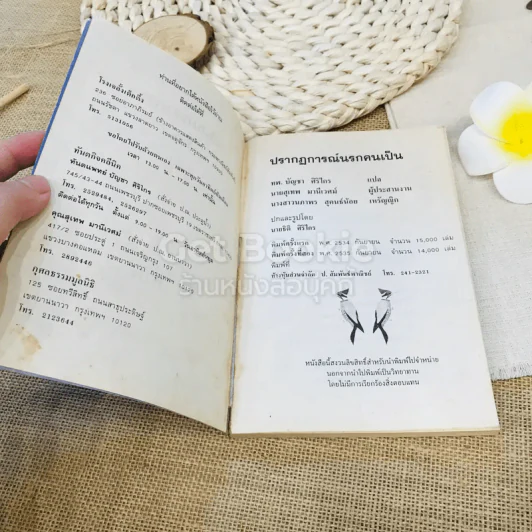 ท่านที่อยากได้หนังสือไว้อ่าน
ติดต่อได้ที่
โรงหล่อ
236 ซอย
โทร.
ขอโดยไปรับด้วยตนเอง
เวลา 13.00 น. - 17.00 น. เท่านั้น
ทันตกิจคลีนิค
ทันตแพทย์ บัญชา ศิริไกร (สั่งจ่าย ปณ.
745/43-44 ถนนเพชรบุรี
โทร. 2529484, 2526297
ติดต่อได้ทุกวัน ตั้งแต่ 9.00 - 19.00
คุณสุเทพ มานีเวศม์ (สั่งจ่าย
417/2 ซอยประดู่ 1 ถนนเจริญกรุง 107
เขตยานนาวา กรุงเทพฯ
โทร. 2892446
กุศลธรรมมูลนิธิ
125 ซอยทวีสิทธิ์ ถนนสาธุประดิษฐ์
เขตยานนาวา กรุงเทพฯ 10120
โทร. 2123644
ปรากฏการณ์นรกคนเป็น
ทพ. บัญชา ศิริไกร แปล
นายสุเทพ มานีเวศม์ ผู้ประสานงาน
นางสาวนภาพร สุคนธ์น้อย เหรัญญิก
ปกและรูปโดย
นายธิติ ศิริไกร
พิมพ์ครั้งแรก พ.ศ. 2534 กันยายน จำนวน 15,000 เล่ม
พิมพ์ครั้งที่สอง พ.ศ. 2535 กันยายน จำนวน 14,000 เล่ม
พิมพ์ที่
ห้างหุ้นส่วนจำกัด ป. สัมพันธ์พาณิชย์ โทร. 241-2521
หนังสือนี้สงวนลิขสิทธิ์สำหรับนำพิมพ์ไปจำหน่าย
นอกจากนำไปพิมพ์เป็นวิทยาทาน
โดยไม่มีการเรียกร้องสิ่งตอบแทน
Get Bookie
ร้านหนังสือบุคกี้